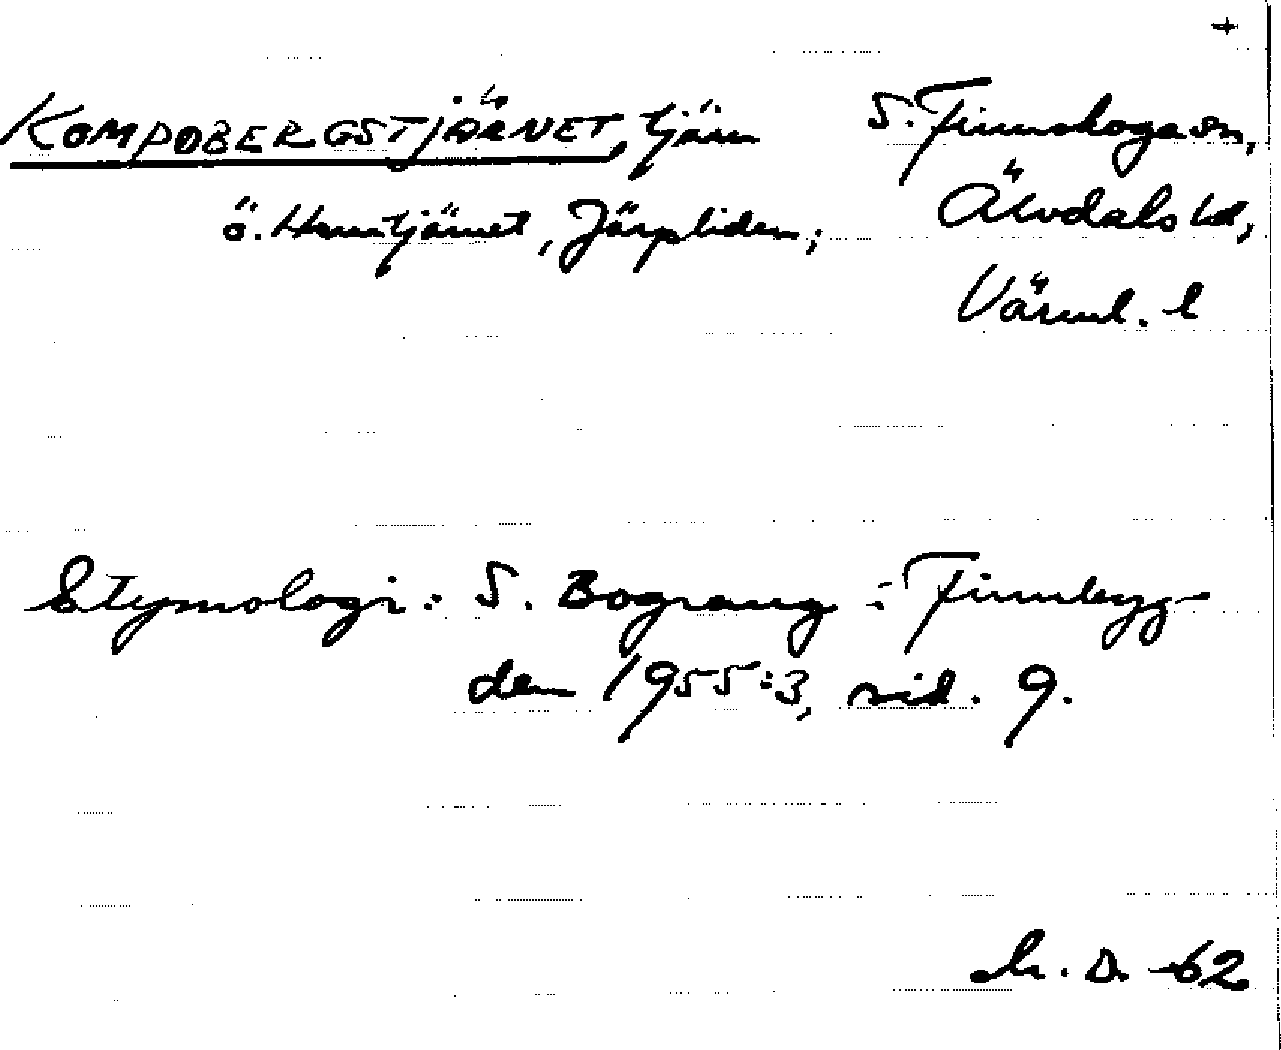 +
KOMPOBERGSTJÄRNET, tjärn S. Finnskoga sn,
ö. Hemtjärnet, Järpliden; Älvdals hd,
Värml. l
Etymologi: S. Bograng i Finnbyg-
den 1955:3, sid. 9.
D. -62